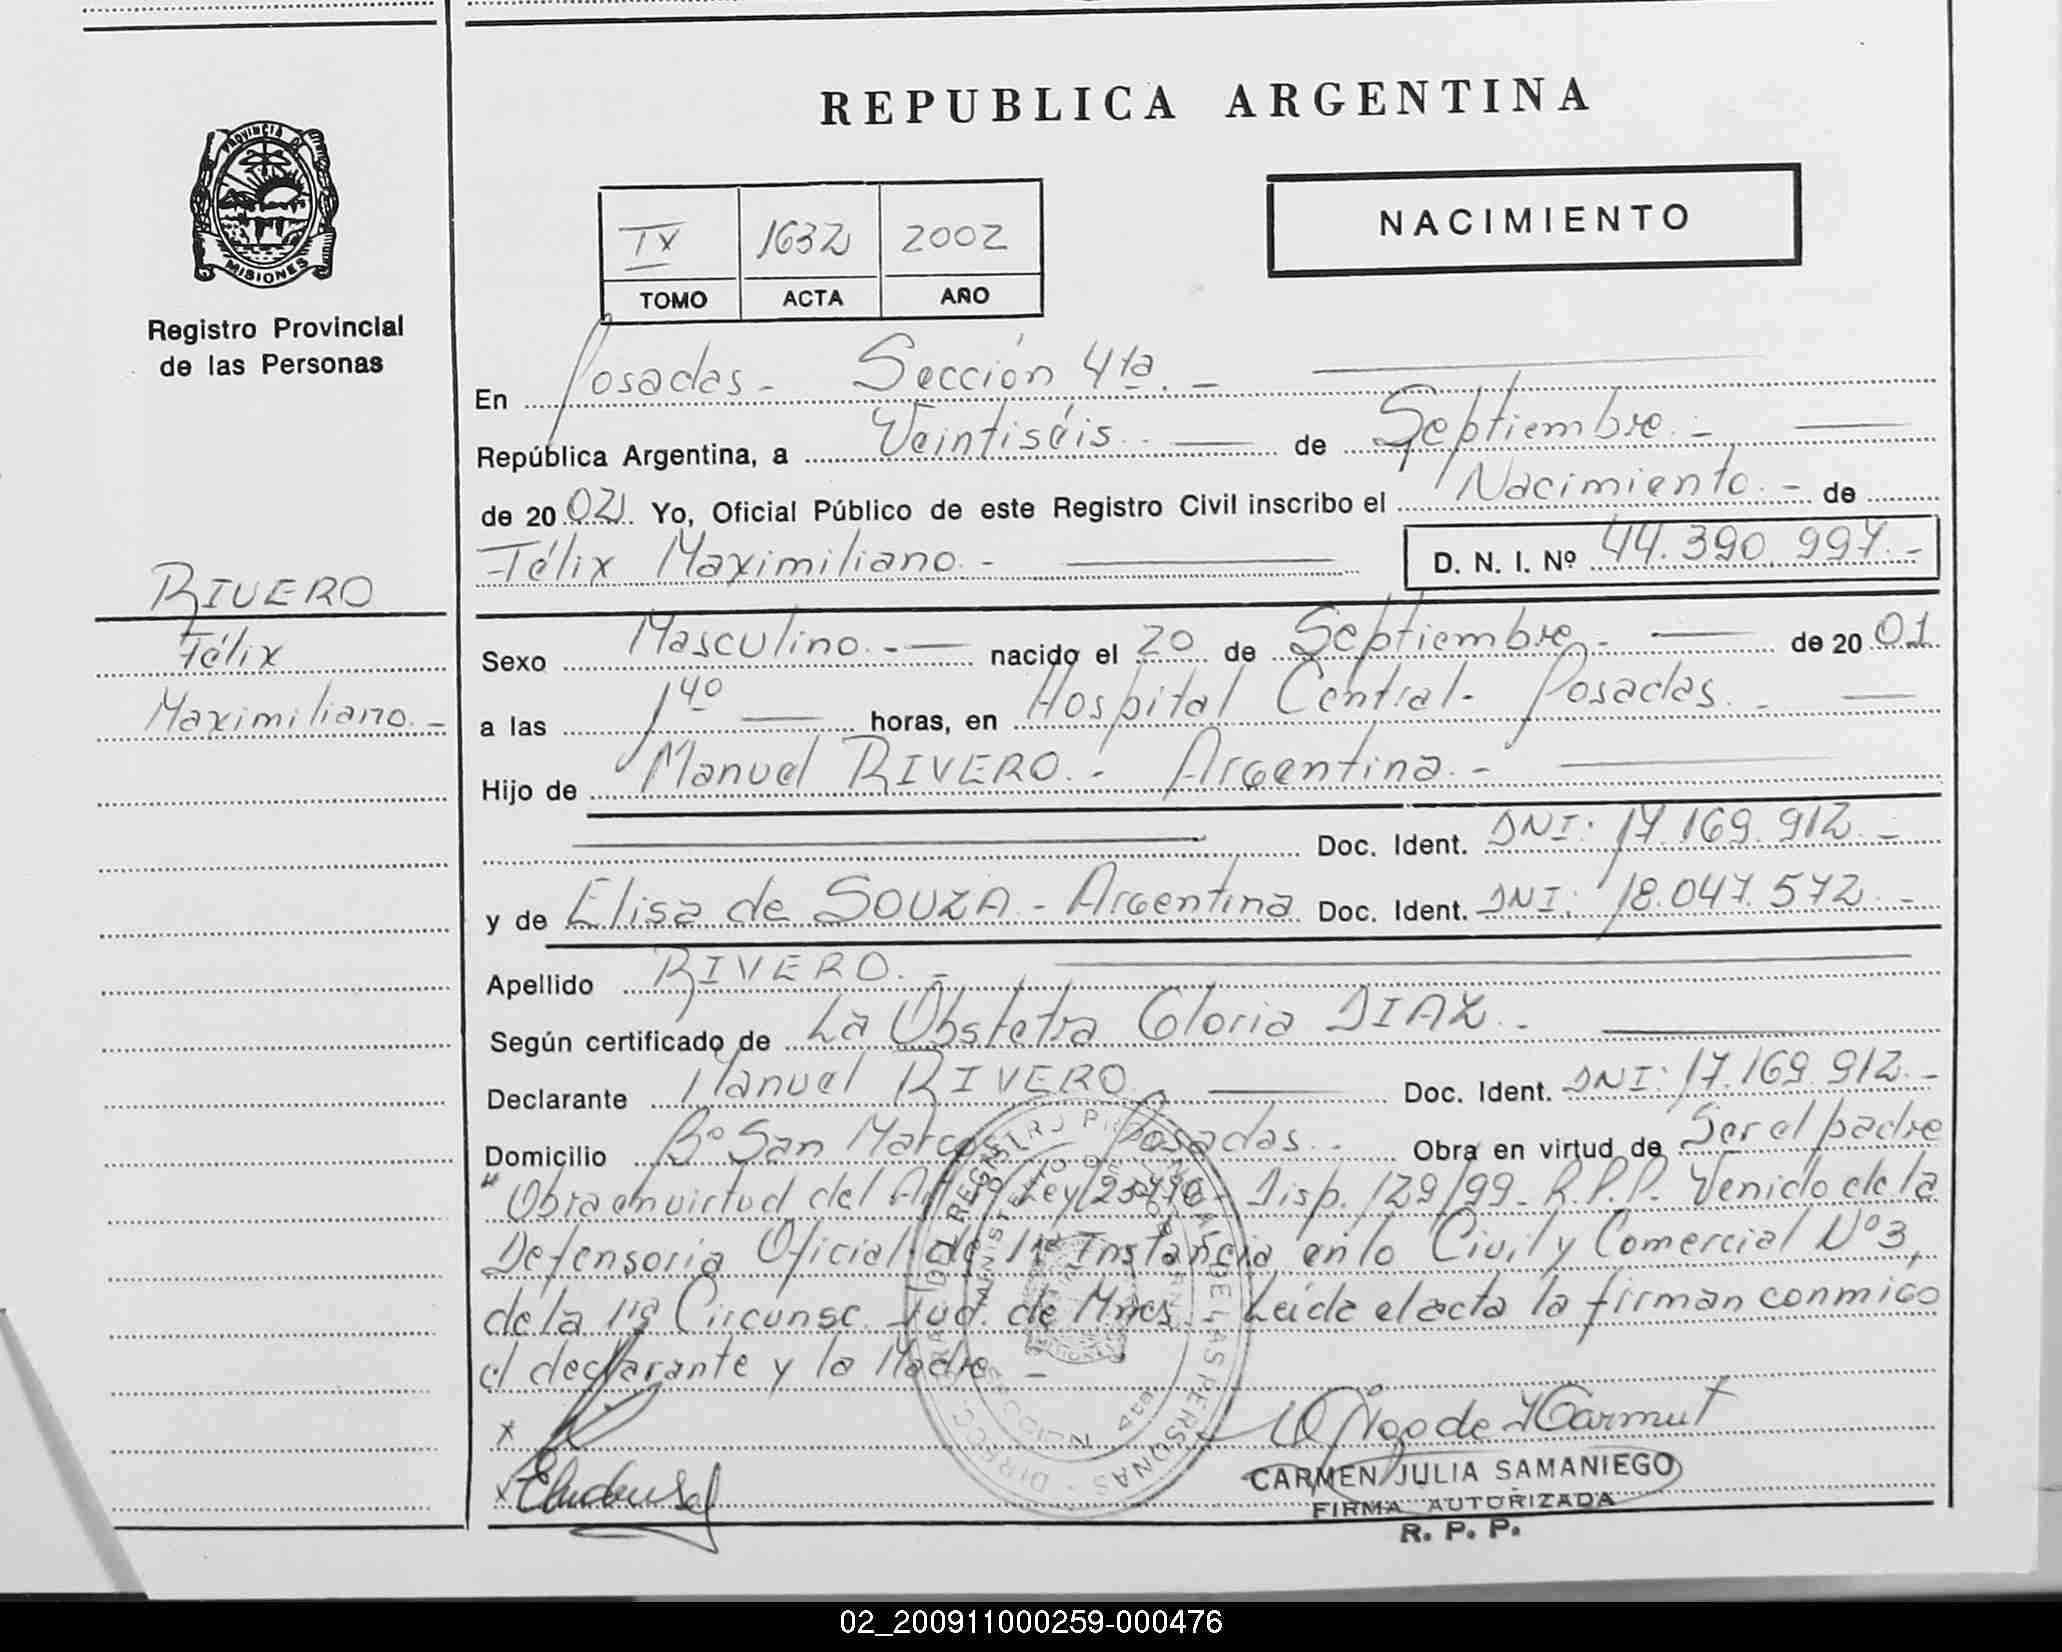 REPUBLICA ARGENTINA
PROVINCIA DE
MISIONES
Registro Provincial
de las Personas
NACIMIENTO
IX 1632 2002
TOMO ACTA AÑO
En Posadas - Sección 4ta. -
República Argentina, a Veintiséis. de Septiembre. -
de 20 02. Yo, Oficial Público de este Registro Civil inscribo el Nacimiento. - de
Félix Maximiliano. - D. N. I. Nº 44.390.997. -
RIVERO
Félix
Maximiliano. -
Sexo Masculino. - nacido el 20 de Septiembre. - de 20 01
a las 1 40 horas, en Hospital Central - Posadas. -
Hijo de Manuel RIVERO. - Argentina. -
Doc. Ident. DNI: 17.169.912. -
y de Elisa de SOUZA - Argentina Doc. Ident. DNI: 18.047.572. -
Apellido RIVERO. -
Según certificado de La Obstetra Gloria DIAZ. -
Declarante Manuel RIVERO Doc. Ident. DNI: 17.169.912. -
Domicilio Bº San Marcos Posadas. - Obra en virtud de Ser el padre
"Obra en virtud del Art. Ley Disp. 129/99 - R.P.P. Venido de la
Defensoria Oficial de 1ra Instancia en lo Civil y Comercial Nº 3,
de la 1ra Circunsc. Jud. de Mnes. - Leida el acta la firman conmigo
el declarante y la Madre -
x
x
CARMEN JULIA SAMANIEGO
FIRMA AUTORIZADA
R. P. P.
02_200911000259-000476